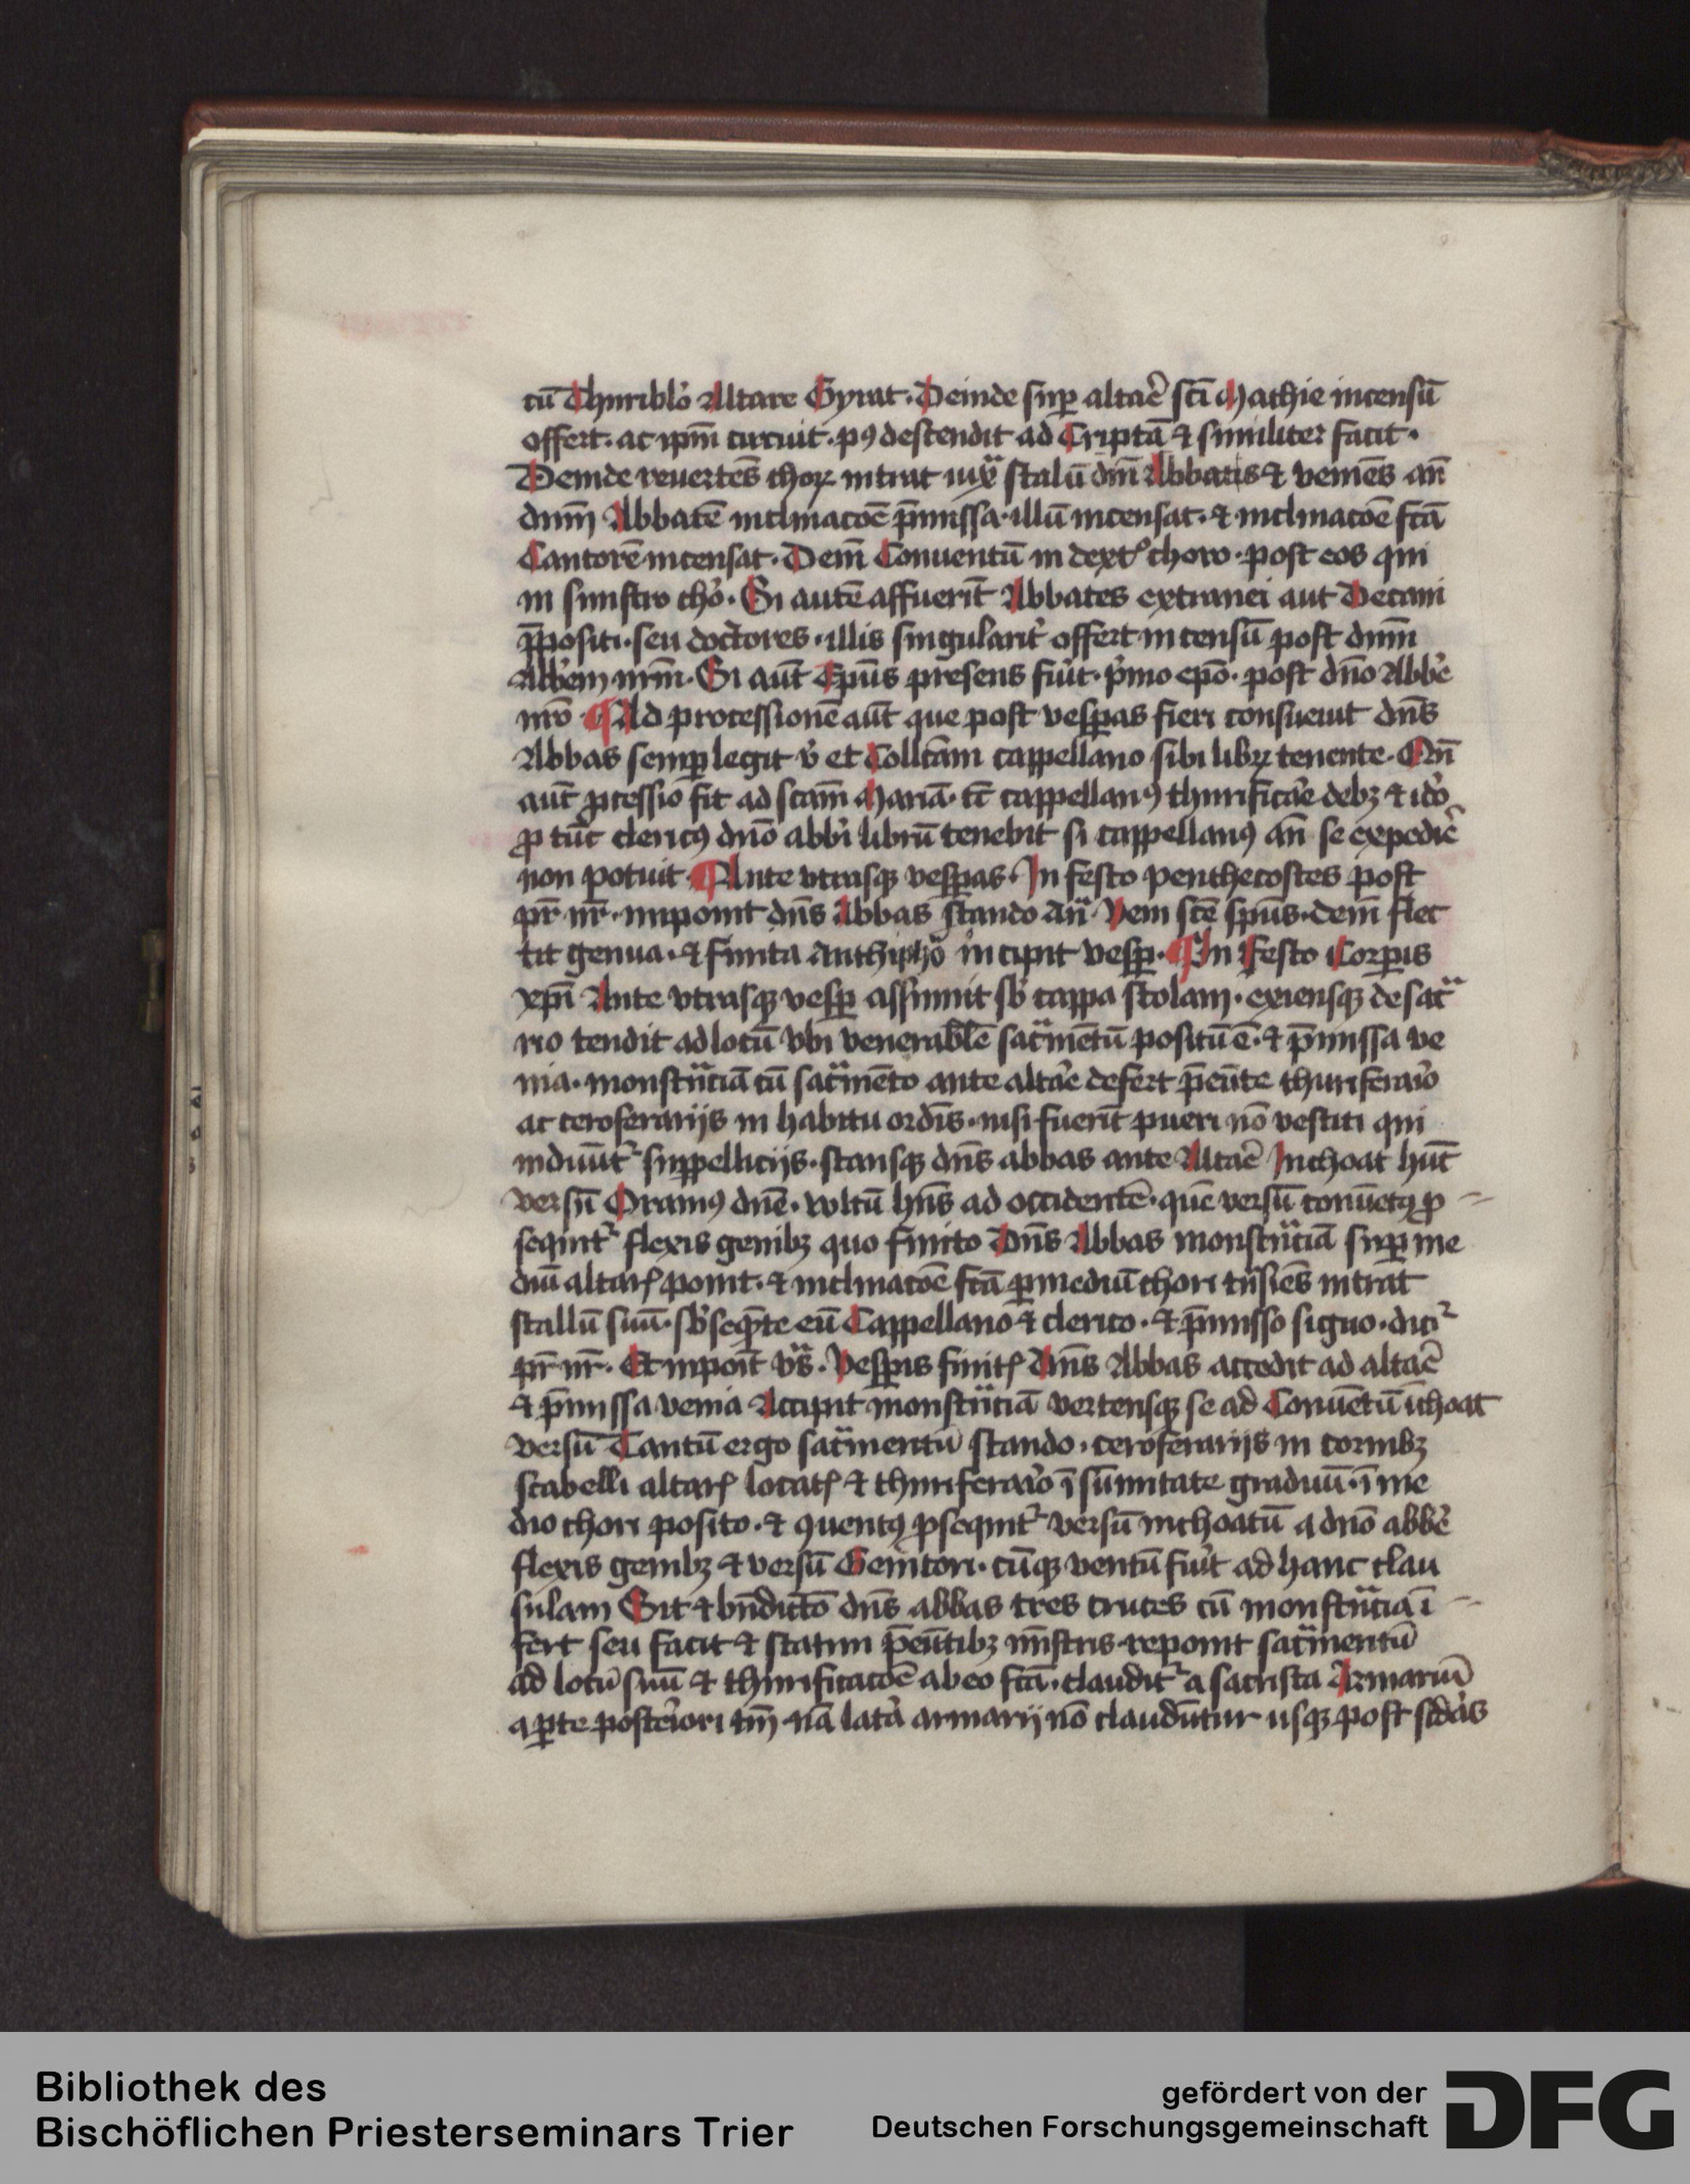 cū Thuriblo Altare Gyrat. Deinde sup altare sci Mathie incensū
offert. ac ipm circuit. p9 descendit ad Criptā & similiter facit.
Deinde reuertēs chorꝝ intrat iuxᵃ stalū dni Abbatis & veniēs añ
dnm Abbatē inclinacōe p̄missa. illū incensat. & inclinacōe fcā
Cantorē incensat. Dein Conuentū in dextᵒ choro. post eos qui
in sinistro cho. Si autē affuerīt Abbates extranei aut Decani
p̄positi. seu doctores. illis singularit offert incensū post dnm
Abbem nrm. Si aūt Epūs presens fuit. pmo epō. post dno Abbe
nrō. ¶ Ad processionē aūt que post vesꝑas fieri consueuit dns
Abbas semꝑ legit v et Collcām cappellano sibi librꝝ tenente. Qn̄
aūt ꝓcessio fit ad scam Mariā. tc cappellan9 thurificare debꝫ & ido
ꝓ tūc cleric9 dno abbi librū tenebit si cappellan9 an se expedire
non potuit. ¶ Ante vtrasqꝫ vesꝑas. In festo penthecostes post
pr nr. imponit dns Abbas stando Añ. Veni scē spūs. dein flec
tit genua. & finita Anthipho incipit vesꝑ. ¶ In Festo Corꝑis
xpi Ante vtrasqꝫ vesꝑ assumit sb cappa stolam. exiensqꝫ de sacᵃ
rio tendit ad locū vbi venerabilē sacᵃmētū positū ē. & p̄missa ve
nia. monstᵃnciā cū sacᵃmēto ante altare defert p̄eūte thuriferario
ac ceroferarijs in habitu ordīs. nisi fuerīt pueri nō vestiti qui
induūtʳ suppellicijs. stansqꝫ dns abbas ante Altare Inchoat hūc
versū Oramus dnē. vultū hns ad occidentē. quē versū conuēt9 ꝓ
sequitʳ flexis genibꝫ quo finito Dns Abbas monstᵃnciā suꝑ me
diū altarꝭ ponit. & inclinacōe fcā ꝑ mediū chori tᵃnsiēs intrat
stallū suū. sbsequēte eū Cappellano & clerico. & p̄misso signo. dicʳ
pr nr. Et inpoīt vs. Vesꝑis finitꝭ Dns Abbas accedit ad altare
& p̄missa venia Accipit monstᵃnciā vertensqꝫ se ad Conuētū īchoat
versū Tantū ergo sacᵃmentū stando. ceroferarijs in cornibꝫ
scabelli altarꝭ locatꝭ & thuriferario ī sūmitate graduū. ī me
dio chori posito. & 9uent9 ꝓsequitʳ versū inchoatū a dno abbe
flexis genibꝫ & versū Genitori. cūqꝫ ventū fuit ad hanc clau
sulam Sit & bn̄dictō dns abbas tres cruces cū monstᵃncia ī
fert seu facit & statim p̄eūtibꝫ mīstris reponit sacᵃmentū
ad locū suū & thurificacōe ab eo fcā. clauditʳ a sacrista Armariū
a ꝑte posteriori tm̄. nā lata armarij nō claudūtur usqꝫ post scdas
Bibliothek des
Bischöflichen Priesterseminars Trier
gefördert von der
Deutschen Forschungsgemeinschaft
DFG